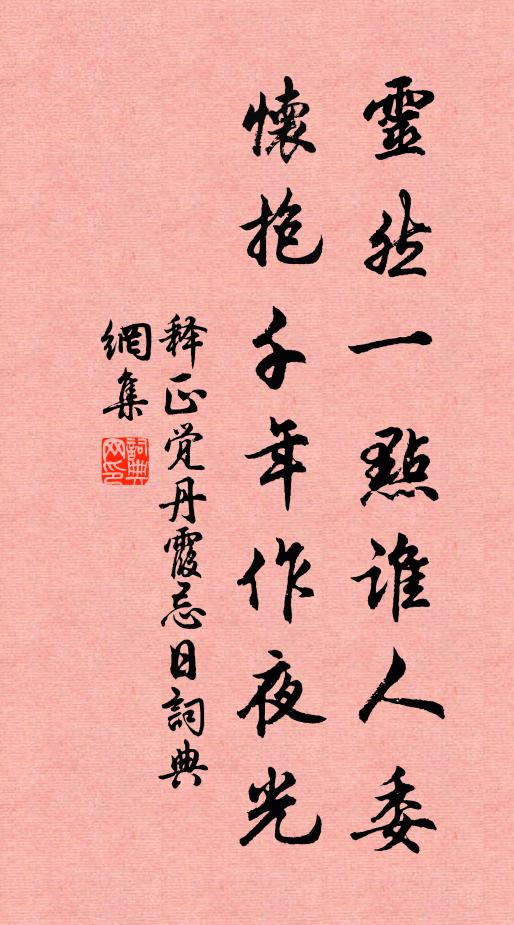 靈然一點誰人委
懷抱千年作夜光
释正觉丹霞忌日詞典
網集
詞典網印